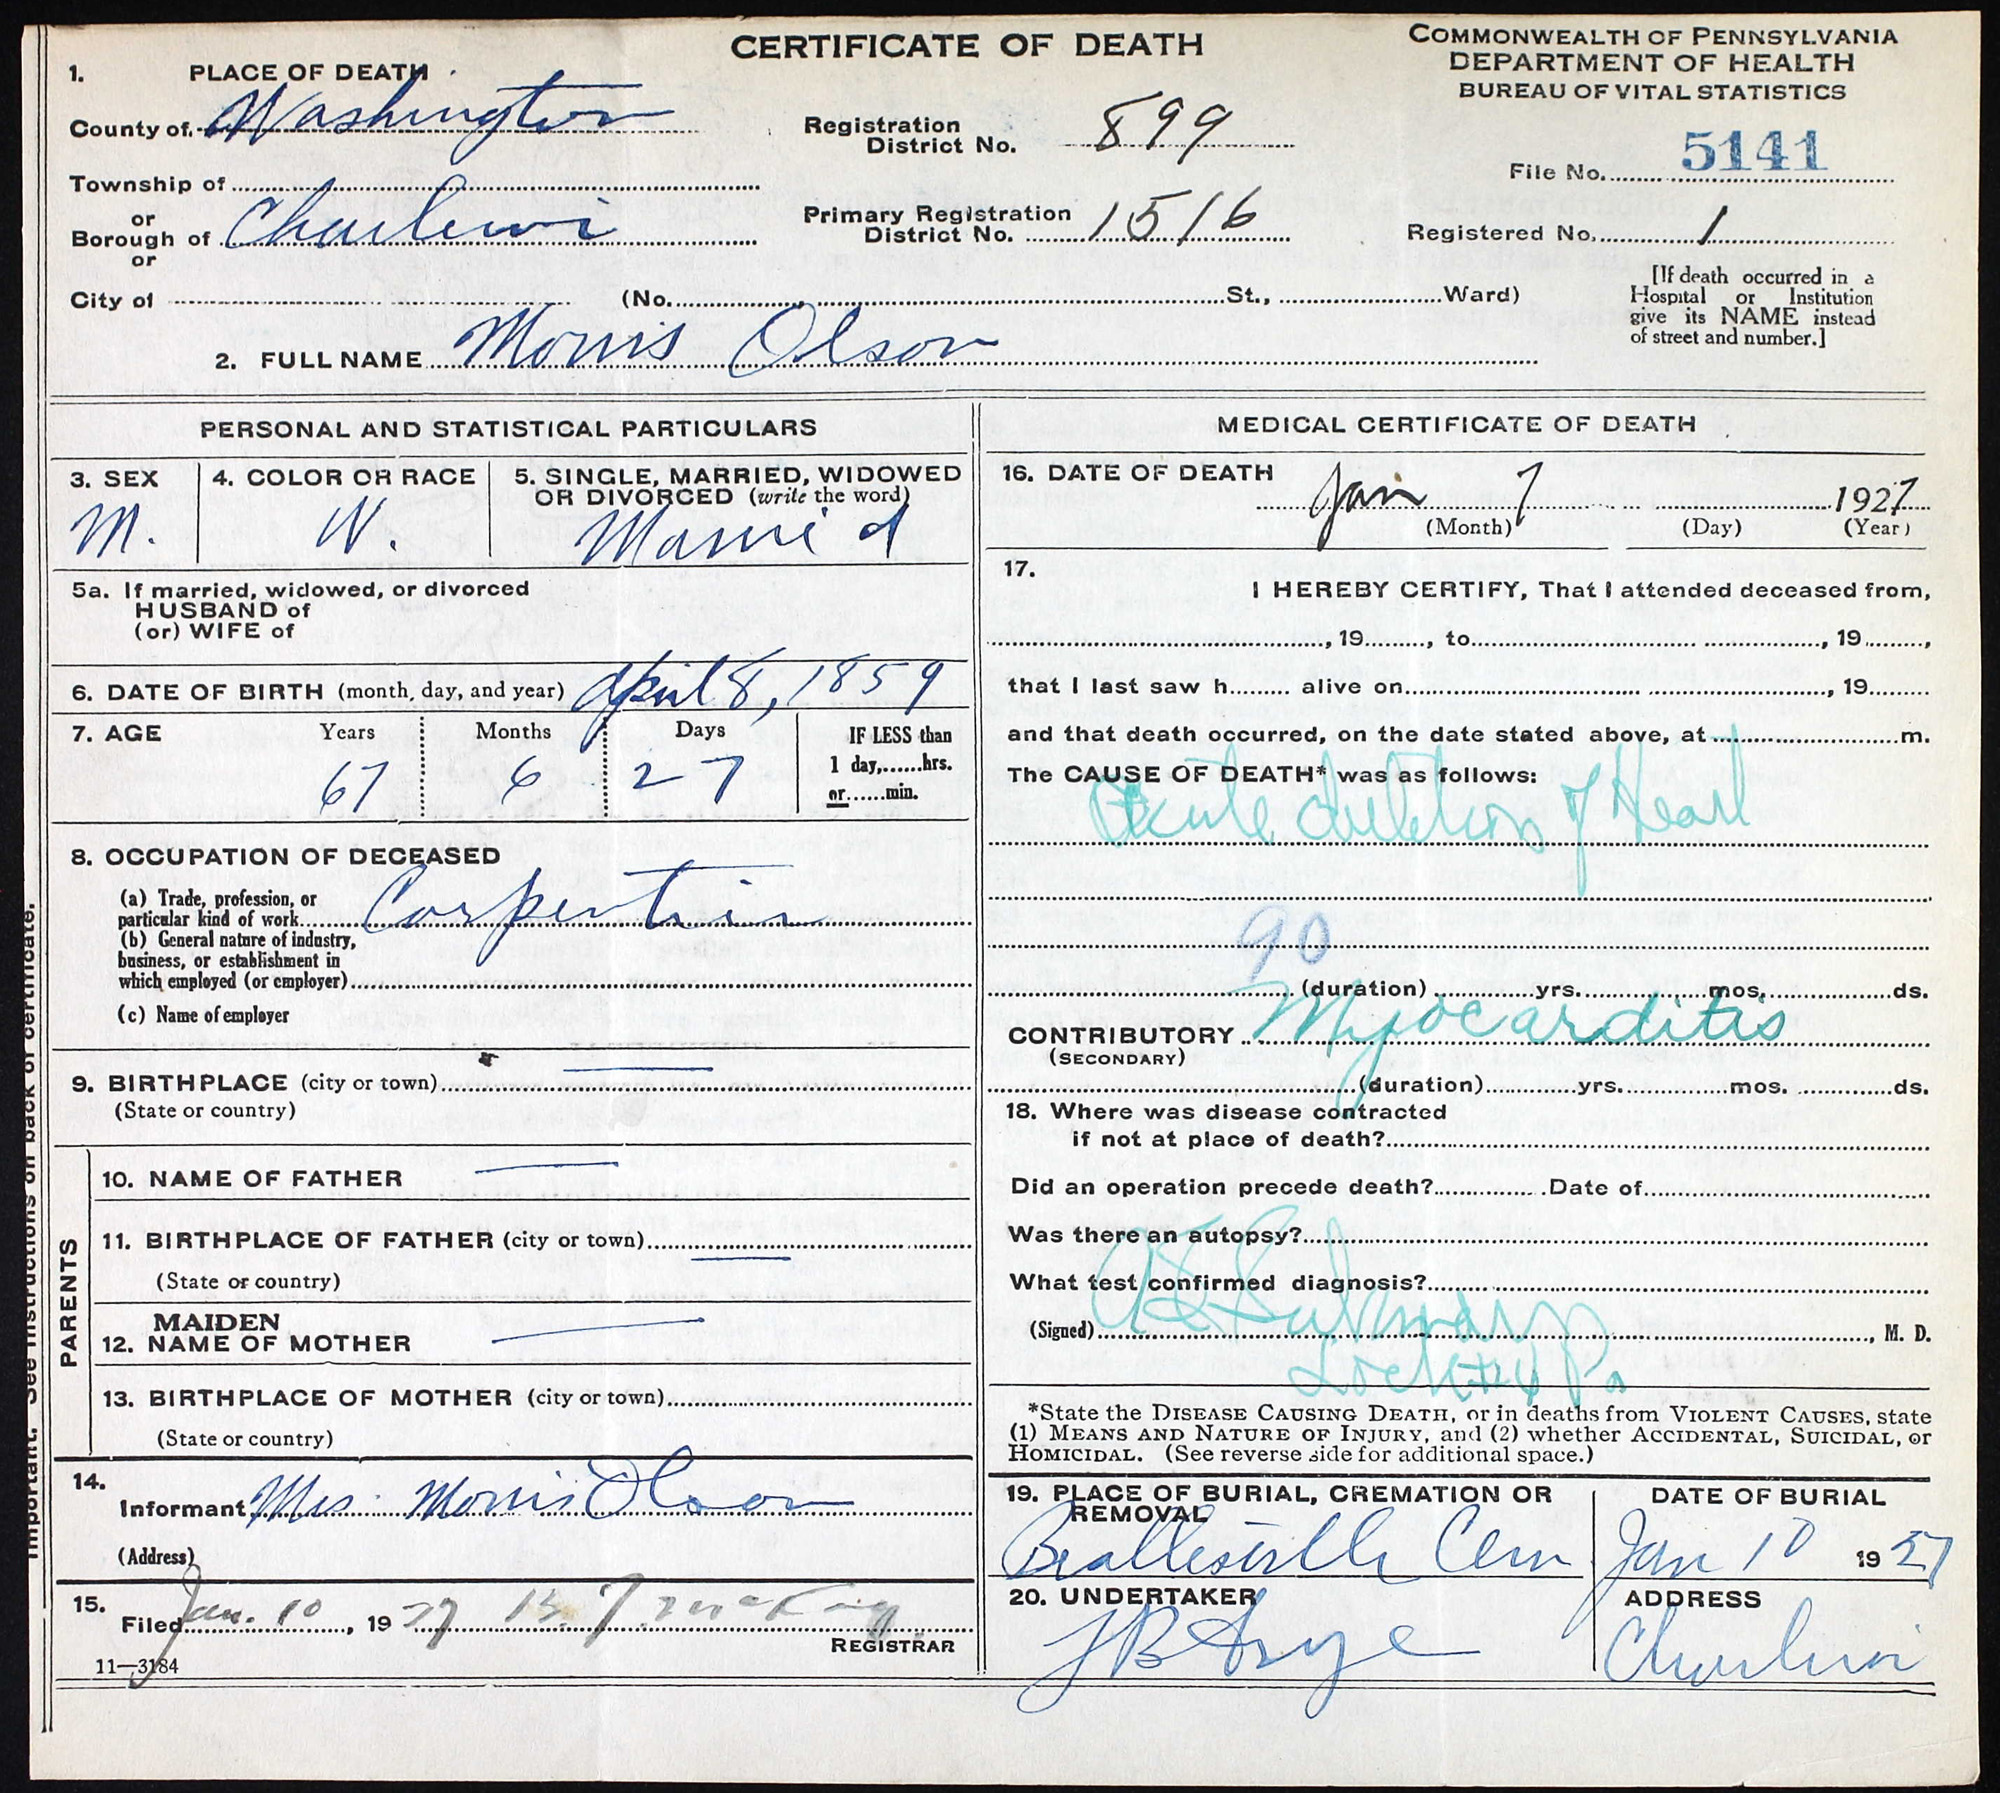 CERTIFICATE OF DEATH
COMMONWEALTH OF PENNSYLVANIA
DEPARTMENT OF HEALTH
BUREAU OF VITAL STATISTICS
1. PLACE OF DEATH
County of Washington
Registration District No. 899
File No. 5141
Township of
or
Borough of Charleroi
or
Primary Registration District No. 1516
Registered No. 1
City of (No. St., Ward)
[If death occurred in a
Hospital or Institution
give its NAME instead
of street and number.]
2. FULL NAME Morris Olson
PERSONAL AND STATISTICAL PARTICULARS
3. SEX
M.
4. COLOR OR RACE
W.
5. SINGLE, MARRIED, WIDOWED
OR DIVORCED (write the word)
Married
5a. If married, widowed, or divorced
HUSBAND of
(or) WIFE of
6. DATE OF BIRTH (month, day, and year) April 8, 1859
7. AGE Years Months Days IF LESS than
1 day,......hrs.
or......min.
67 6 27
8. OCCUPATION OF DECEASED
(a) Trade, profession, or
particular kind of work Carpenter
(b) General nature of industry,
business, or establishment in
which employed (or employer)
(c) Name of employer
9. BIRTHPLACE (city or town)
(State or country)
PARENTS
10. NAME OF FATHER
11. BIRTHPLACE OF FATHER (city or town)
(State or country)
MAIDEN
12. NAME OF MOTHER
13. BIRTHPLACE OF MOTHER (city or town)
(State or country)
14.
Informant Mrs. Morris Olson
(Address)
15.
Filed Jan. 10, 1927
REGISTRAR
11—3184
Important. See instructions on back of certificate.
MEDICAL CERTIFICATE OF DEATH
16. DATE OF DEATH
Jan 7 1927
(Month) (Day) (Year)
17.
I HEREBY CERTIFY, That I attended deceased from,
, 19......, to , 19......,
that I last saw h...... alive on , 19......
and that death occurred, on the date stated above, at m.
The CAUSE OF DEATH* was as follows:
Acute dilatation of Heart
90
(duration) yrs. mos. ds.
CONTRIBUTORY Myocarditis
(SECONDARY)
(duration) yrs. mos. ds.
18. Where was disease contracted
if not at place of death?
Did an operation precede death? Date of
Was there an autopsy?
What test confirmed diagnosis?
(Signed) , M. D.
Pa
*State the DISEASE CAUSING DEATH, or in deaths from VIOLENT CAUSES, state
(1) MEANS AND NATURE OF INJURY, and (2) whether ACCIDENTAL, SUICIDAL, or
HOMICIDAL. (See reverse side for additional space.)
19. PLACE OF BURIAL, CREMATION OR
REMOVAL
Beallesville Cem
DATE OF BURIAL
Jan 10 1927
20. UNDERTAKER
J B Frye
ADDRESS
Charleroi